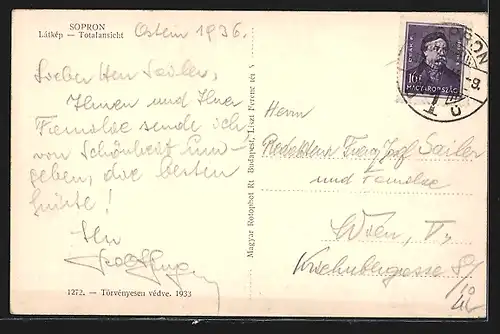 SOPRON
Látkép — Totalansicht
Ostern 1936.
Lieber Herr Sailer,
Ihnen und Ihrer
Familie sende ich
von Schönheit um-
geben, die besten
Grüße!
Ihr
1272. — Törvényesen védve. 1933
Magyar Rotophot Rt. Budapest, Liszt Ferenc tér
16f
MAGYARORSZÁG
SOPRON
Herrn
Redakteur Josef Sailer
und Familie
Wien, V.,